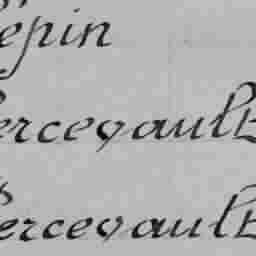 epin
ercevault
ercevault